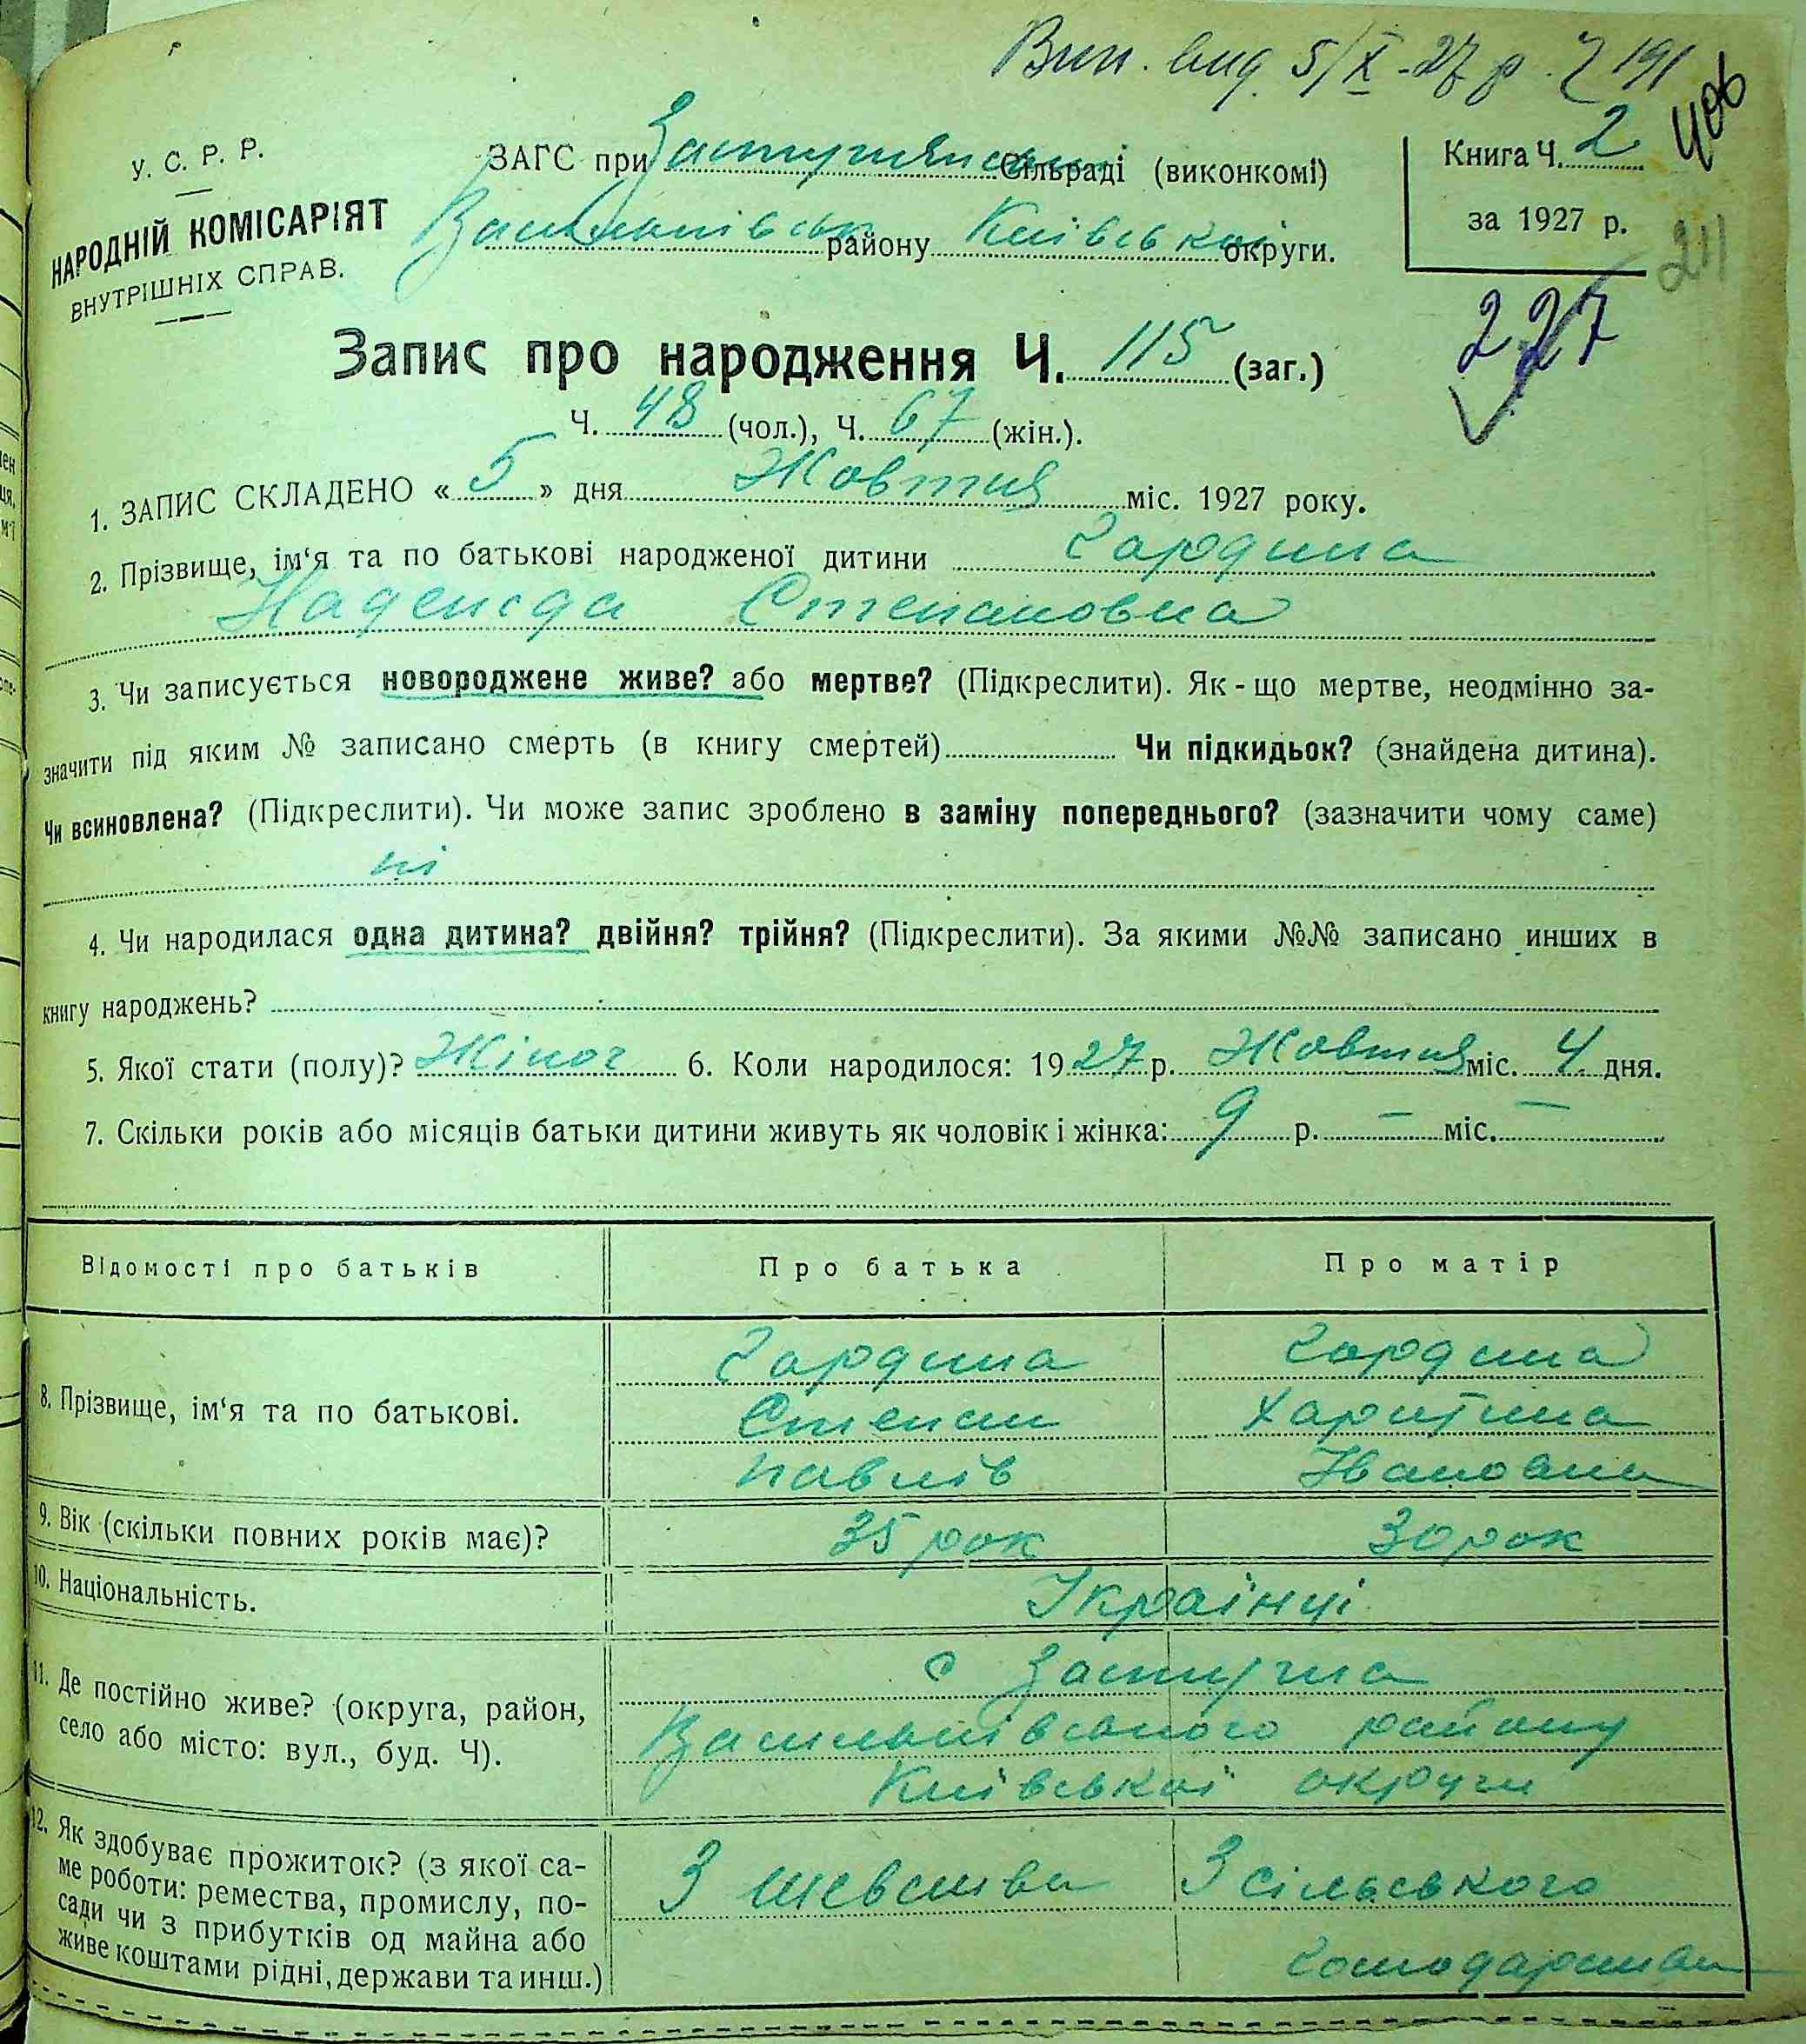 Вип. вид. 5/X-27 р. Ч 191
406
У. С. Р. Р.
НАРОДНІЙ КОМІСАРІЯТ
ВНУТРІШНІХ СПРАВ.
ЗАГС при Застугнянськ Сільраді (виконкомі)
Васильківськ району Київської округи.
Книга Ч. 2
за 1927 р.
211
227
Запис про народження Ч. 115 (заг.)
Ч. 48 (чол.), Ч. 67 (жін.).
1. ЗАПИС СКЛАДЕНО « 5 » дня Жовтня міс. 1927 року.
2. Прізвище, ім‘я та по батькові народженої дитини Гардина
Надежда Степановна
3. Чи записується новороджене живе? або мертве? (Підкреслити). Як-що мертве, неодмінно за-
значити під яким № записано смерть (в книгу смертей) Чи підкидьок? (знайдена дитина).
Чи всиновлена? (Підкреслити). Чи може запис зроблено в заміну попереднього? (зазначити чому саме)
ні
4. Чи народилася одна дитина? двійня? трійня? (Підкреслити). За якими №№ записано инших в
книгу народжень?
5. Якої стати (полу)? Жіноч 6. Коли народилося: 1927 р. Жовтня міс. 4 дня.
7. Скільки років або місяців батьки дитини живуть як чоловік і жінка: 9 р. — міс. —
Відомості про батьків Про батька Про матір
8. Прізвище, ім‘я та по батькові.
Гардина Гардина
Степан Харитина
Павлів Івановна
9. Вік (скільки повних років має)? 35 рок 30 рок
10. Національність. Українці
11. Де постійно живе? (округа, район,
село або місто: вул., буд. Ч).
с Застугна
Васильківського району
Київської округи
12. Як здобуває прожиток? (з якої са-
ме роботи: ремества, промислу, по-
сади чи з прибутків од майна або
живе коштами рідні, держави та инш.)
З шевства З сільського
господарства